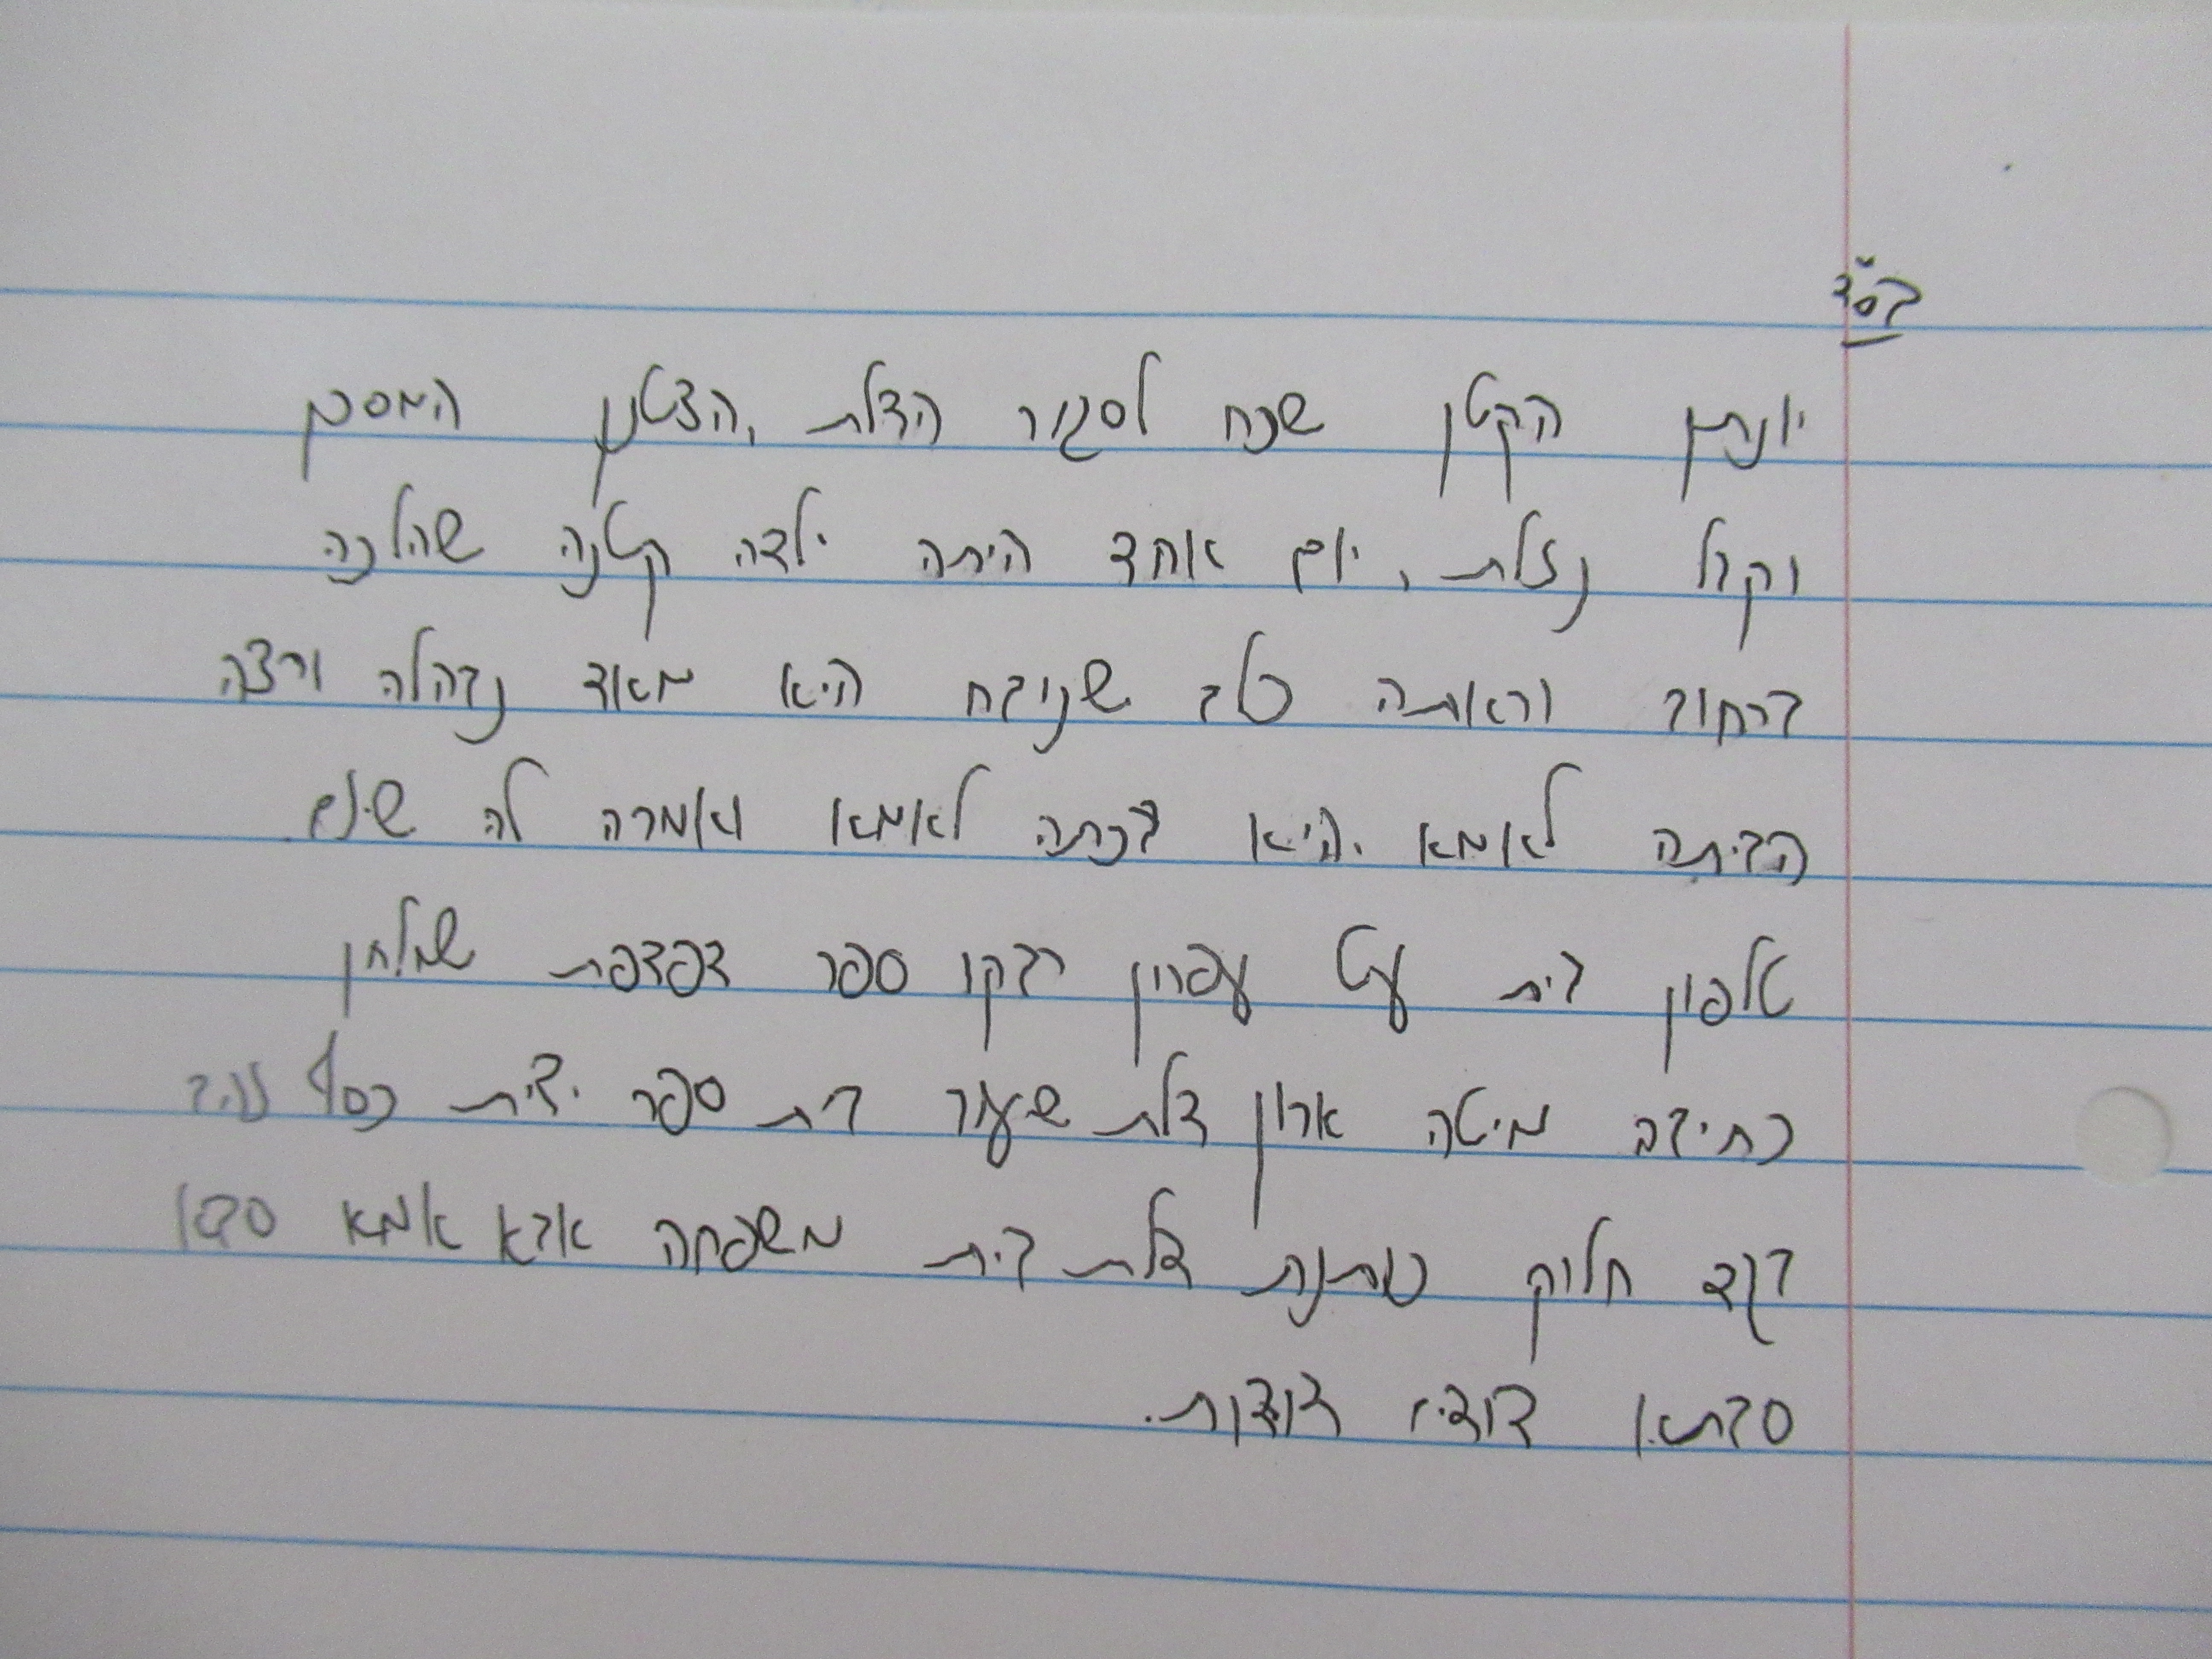 בס"ד
יונתן הקטן שכח לסגור הדלת, הצטנן המסכן
וקיבל נזלת, יום אחד היתה ילדה קטנה שהלכה
ברחוב וראתה כלב שנובח היא מאוד נבהלה ורצה
הביתה לאמא. היא בכתה לאמא ואמרה לה שיש
טלפון בית עט עפרון בקבוק ספר דפדפת שולחן
כתיבה מיטה ארון דלת שיעור בית ספר ידית כסף זהב
בגד חלוק כותנת דלת בית משפחה אבא אמא סבא
סבתא דודים דודות.